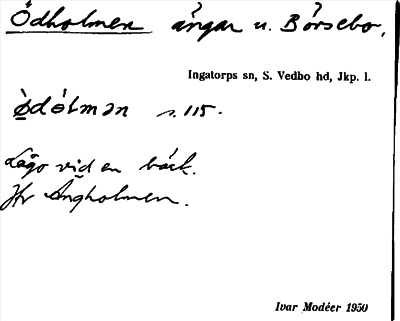 Ödholmen ängar u. Börsebo,
Ingatorps sn, S. Vedbo hd, Jkp. l.
s. 115.
Lågo vid en bäck.
Jfr Ängholmen.
Ivar Modéer 1950